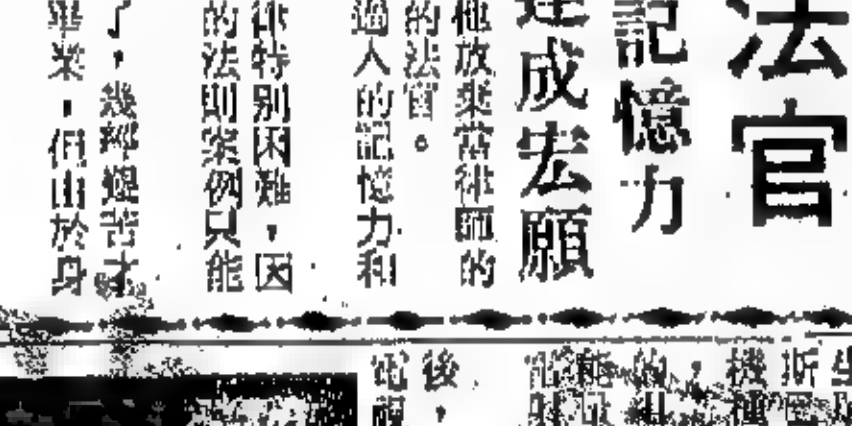 法官
記憶力
達成宏願
他放棄當律師的
的法官。
過人的記憶力和
律特別困難，因
的法則案例只能
了，幾經艱苦才
畢業，但由於身
斯
機
的，
能
後，
電視